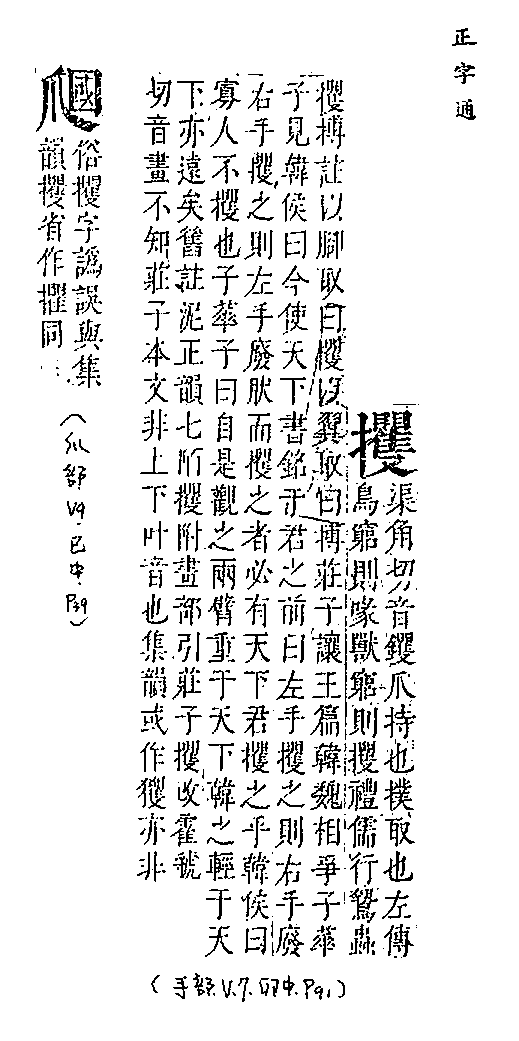 正字通
攫
渠角切音钁爪持也撲取也左傳
鳥窮則喙獸窮則攫禮儒行鷙蟲
攫搏註以腳取曰攫以翼取曰搏莊子讓王篇韓魏相爭子華
子見韓侯曰今使天下書銘于君之前曰左手攫之則右手廢
右手攫之則左手廢肰而攫之者必有天下君攫之乎韓侯曰
寡人不攫也子華子曰自是觀之兩臂重于天下韓之輕于天
下亦遠矣舊註泥正韻七陌攫附畫部引莊子攫改霍虢
切音畫不知莊子本文非上下叶音也集韻或作玃亦非
(手部.V.7.卯中.P91)
俗攫字譌誤與集
韻攫省作擢同
(爪部V9.巳中.P39)